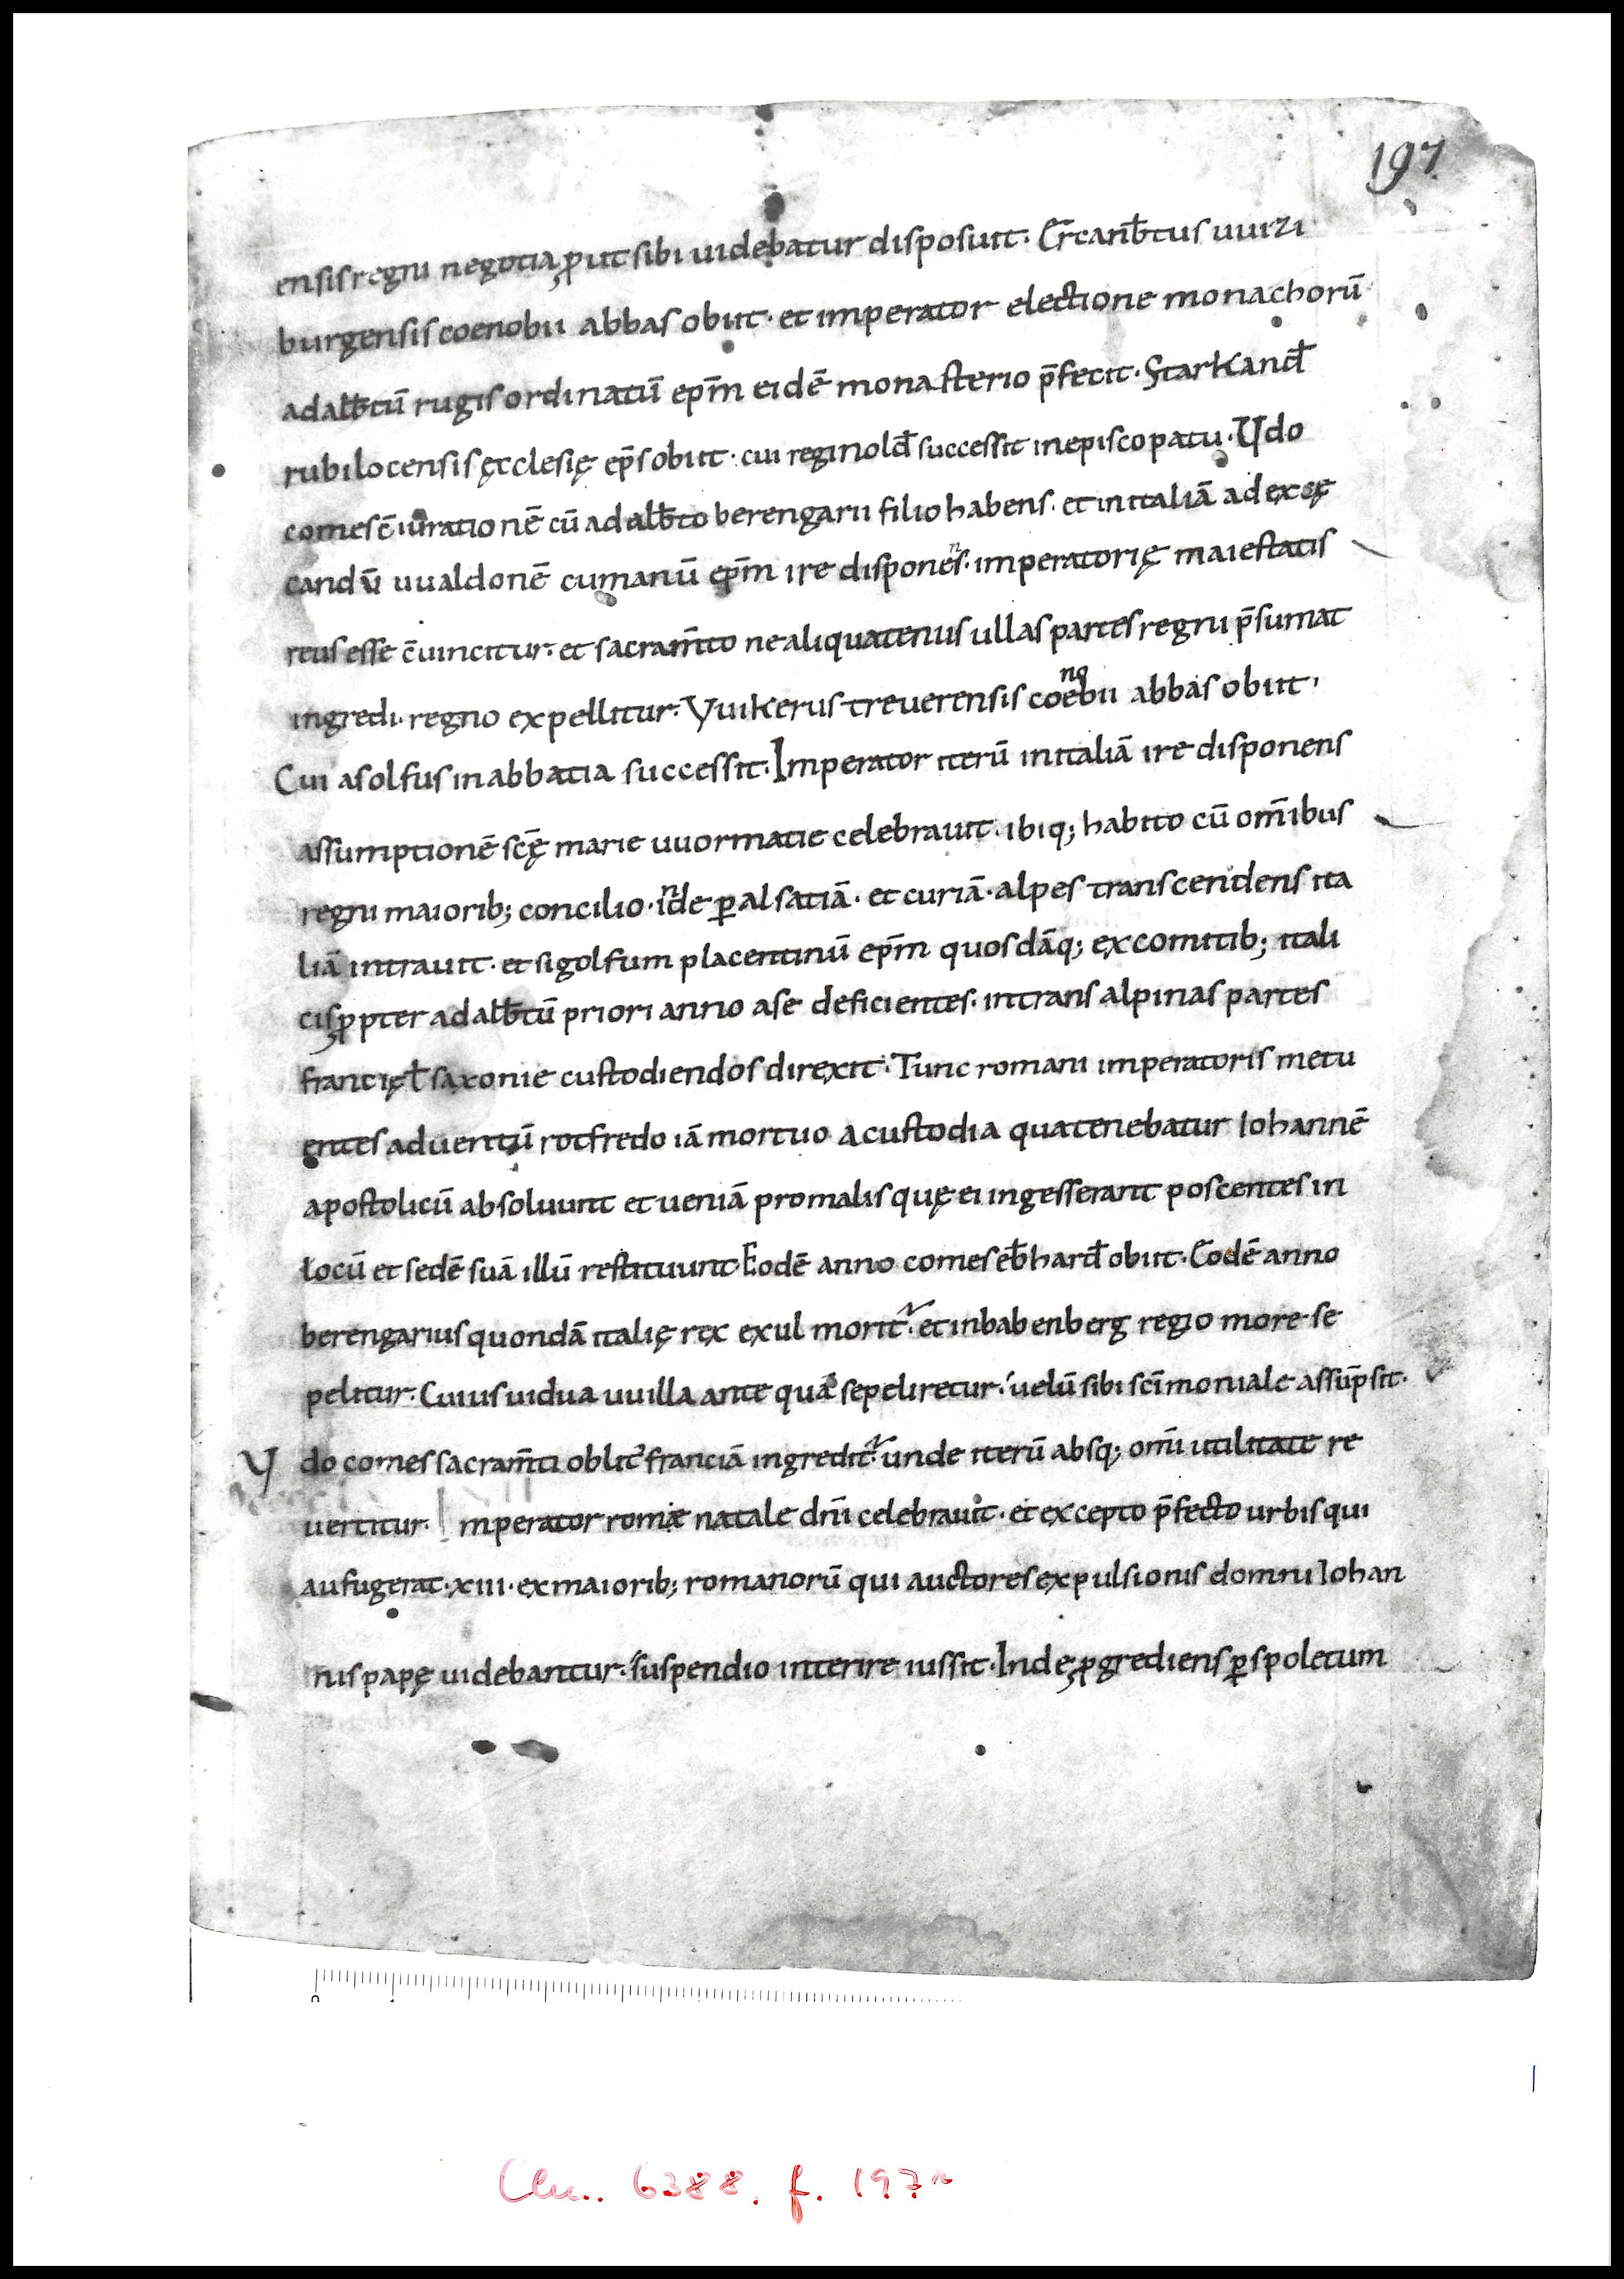 197
ensis regni negotia ꝓut sibi uidebatur disposuit· Ercanb̄tus uuizi
burgensis coenobii abbas obiit· et imperator electione monachorū
adalb̄tū rugis ordinatū ep̄m eidē monasterio p̄fecit· Starkand̄
rubilocensis ęcclesię ep̄s obiit· cui reginold̄ successit in episcopatu· Udo
comes c̄iurationē cū adalb̄to berengarii filio habens· et in italiā ad exce
candū uualdonē cumanū ep̄m ire disponens· imperatorię maiestatis
reus esse c̄uincitur· et sacram̄to ne aliquatenus ullas partes regni p̄sumat
ingredi· regno expellitur· Vuikerus treuerensis coenobii abbas obiit·
Cui asolfus in abbatia successit· Imperator iterū in italiā ire disponens
assumptionē sc̄ę marie uuormatie celebrauit· ibiq; habito cū om̄ibus
regni maiorib; concilio· inde ꝑ alsatiā· et curiā· alpes transcendens ita
liā intrauit· et sigolfum placentinū ep̄m quosdāq; ex comitib; itali
cis ꝓpter adalb̄tū priori anno a se deficientes· in transalpinas partes
francię ł saxonie custodiendos direxit· Tunc romani imperatoris metu
entes aduentū rotfredo iā mortuo a custodia qua tenebatur Iohannē
apostolicū absoluunt et ueniā pro malis quę ei ingesserant poscentes in
locū et sedē suā illū restituunt· Eodē anno comes eb̄hard̄ obiit· Eodē anno
berengarius quondā italię rex exul morit᷑· et in babenberg regio more se
pelitur· Cuius uidua uuilla ante quā sepeliretur· uelū sibi sc̄imoniale assūpsit·
Vdo comes sacram̄ti oblit᾽ franciā ingredit᷑· unde iterū absq; om̄i utilitate re
uertitur· Imperator romæ natale dn̄i celebrauit· et excepto p̄fecto urbis qui
aufugerat· xiii· ex maiorib; romanorū qui auctores expulsionis domni Iohan
nis papę uidebantur· suspendio interire iussit· Inde ꝓgrediens ꝑ spoletum
Clm. 6388. f. 197r